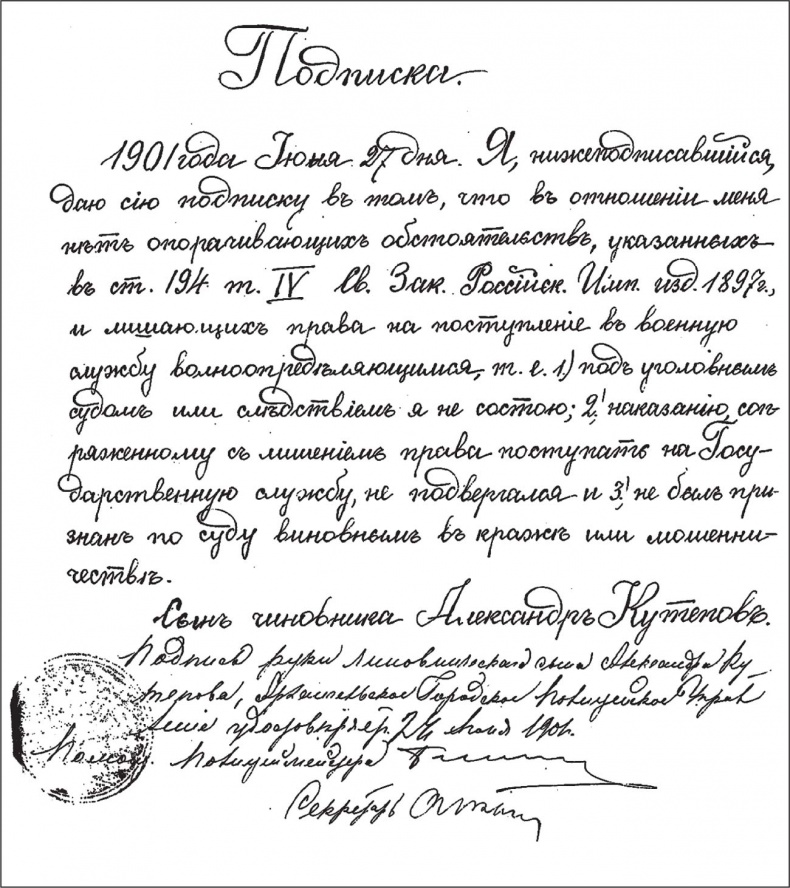 Подписка.
1901 года Іюня 27 дня. Я, нижеподписавшійся,
даю сію подписку въ томъ, что въ отношеніи меня
нѣтъ опорачивающихъ обстоятельствъ, указанныхъ
въ ст. 194 т. IV Св. Зак. Россійск. Имп. изд. 1897 г.,
и лишающихъ права на поступленіе въ военную
службу волноопредѣляющимся, т. е. 1) подъ уголовнымъ
судомъ или слѣдствіемъ я не состою; 2) наказанію, соп-
ряженному съ лишеніемъ права поступать на Госу-
дарственную службу, не подвергался и 3) не былъ при-
знанъ по суду виновнымъ въ кражѣ или мошенни-
чествѣ.
Сынъ чиновника Александръ Кутеповъ.
Подпись руки чиновническаго сына Александра Ку-
тепова, Архангельское Городское Полицейское Управ
леніе удостовѣряетъ. 1901.
Помощ. Полиціймейстера
Секретарь